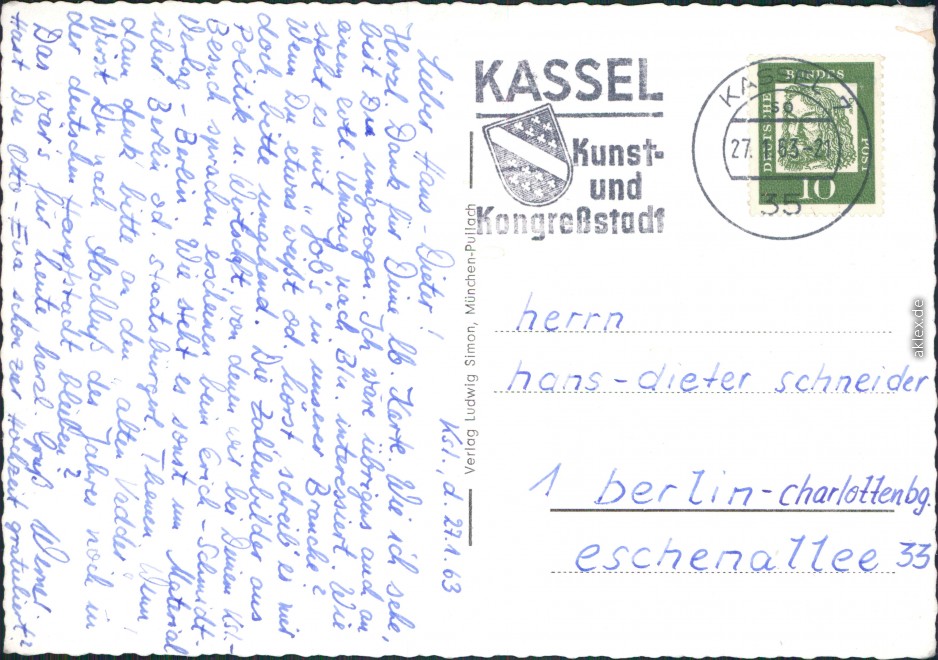 Ksl., d. 27.1.63
Lieber Hans-Dieter!
Herzl. Dank für Deine lb. Karte. Wie ich sehe,
bist Du umgezogen. Ich wäre übrigens auch an
einem evtl. Umzug nach Bln. interessiert. Wie
steht es mit "Job's" in unserer Branche?
Wenn Du etwas weißt od. hörst schreib' es mir
doch bitte umgehend. Die Zahlenbilder aus
Politik u. Wirtschaft, von denen wir bei Deinem Ksl.-
Besuch sprachen erscheinen beim Erich-Schmidt-
Verlag-Berlin. Wie steht es sonst um Material
über Berlin od. staatsbürgerl. Themen. Wenn
dann denk bitte an den "alten Vadder".
Wirst Du nach Abschluß des Jahres noch in
der deutschen Hauptstadt bleiben?
Das wär's für heute herzl. Gruß Werner!
Hast Du Otto-Eva schon zur Hochzeit gratuliert?
Verlag Ludwig Simon, München-Pullach
KASSEL
Kunst-
und
Kongreßstadt
KASSEL
27.1.63-21
35
DEUTSCHE BUNDESPOST
10
herrn
hans-dieter schneider
1 berlin-charlottenbg.
eschenallee 33
aklex.de